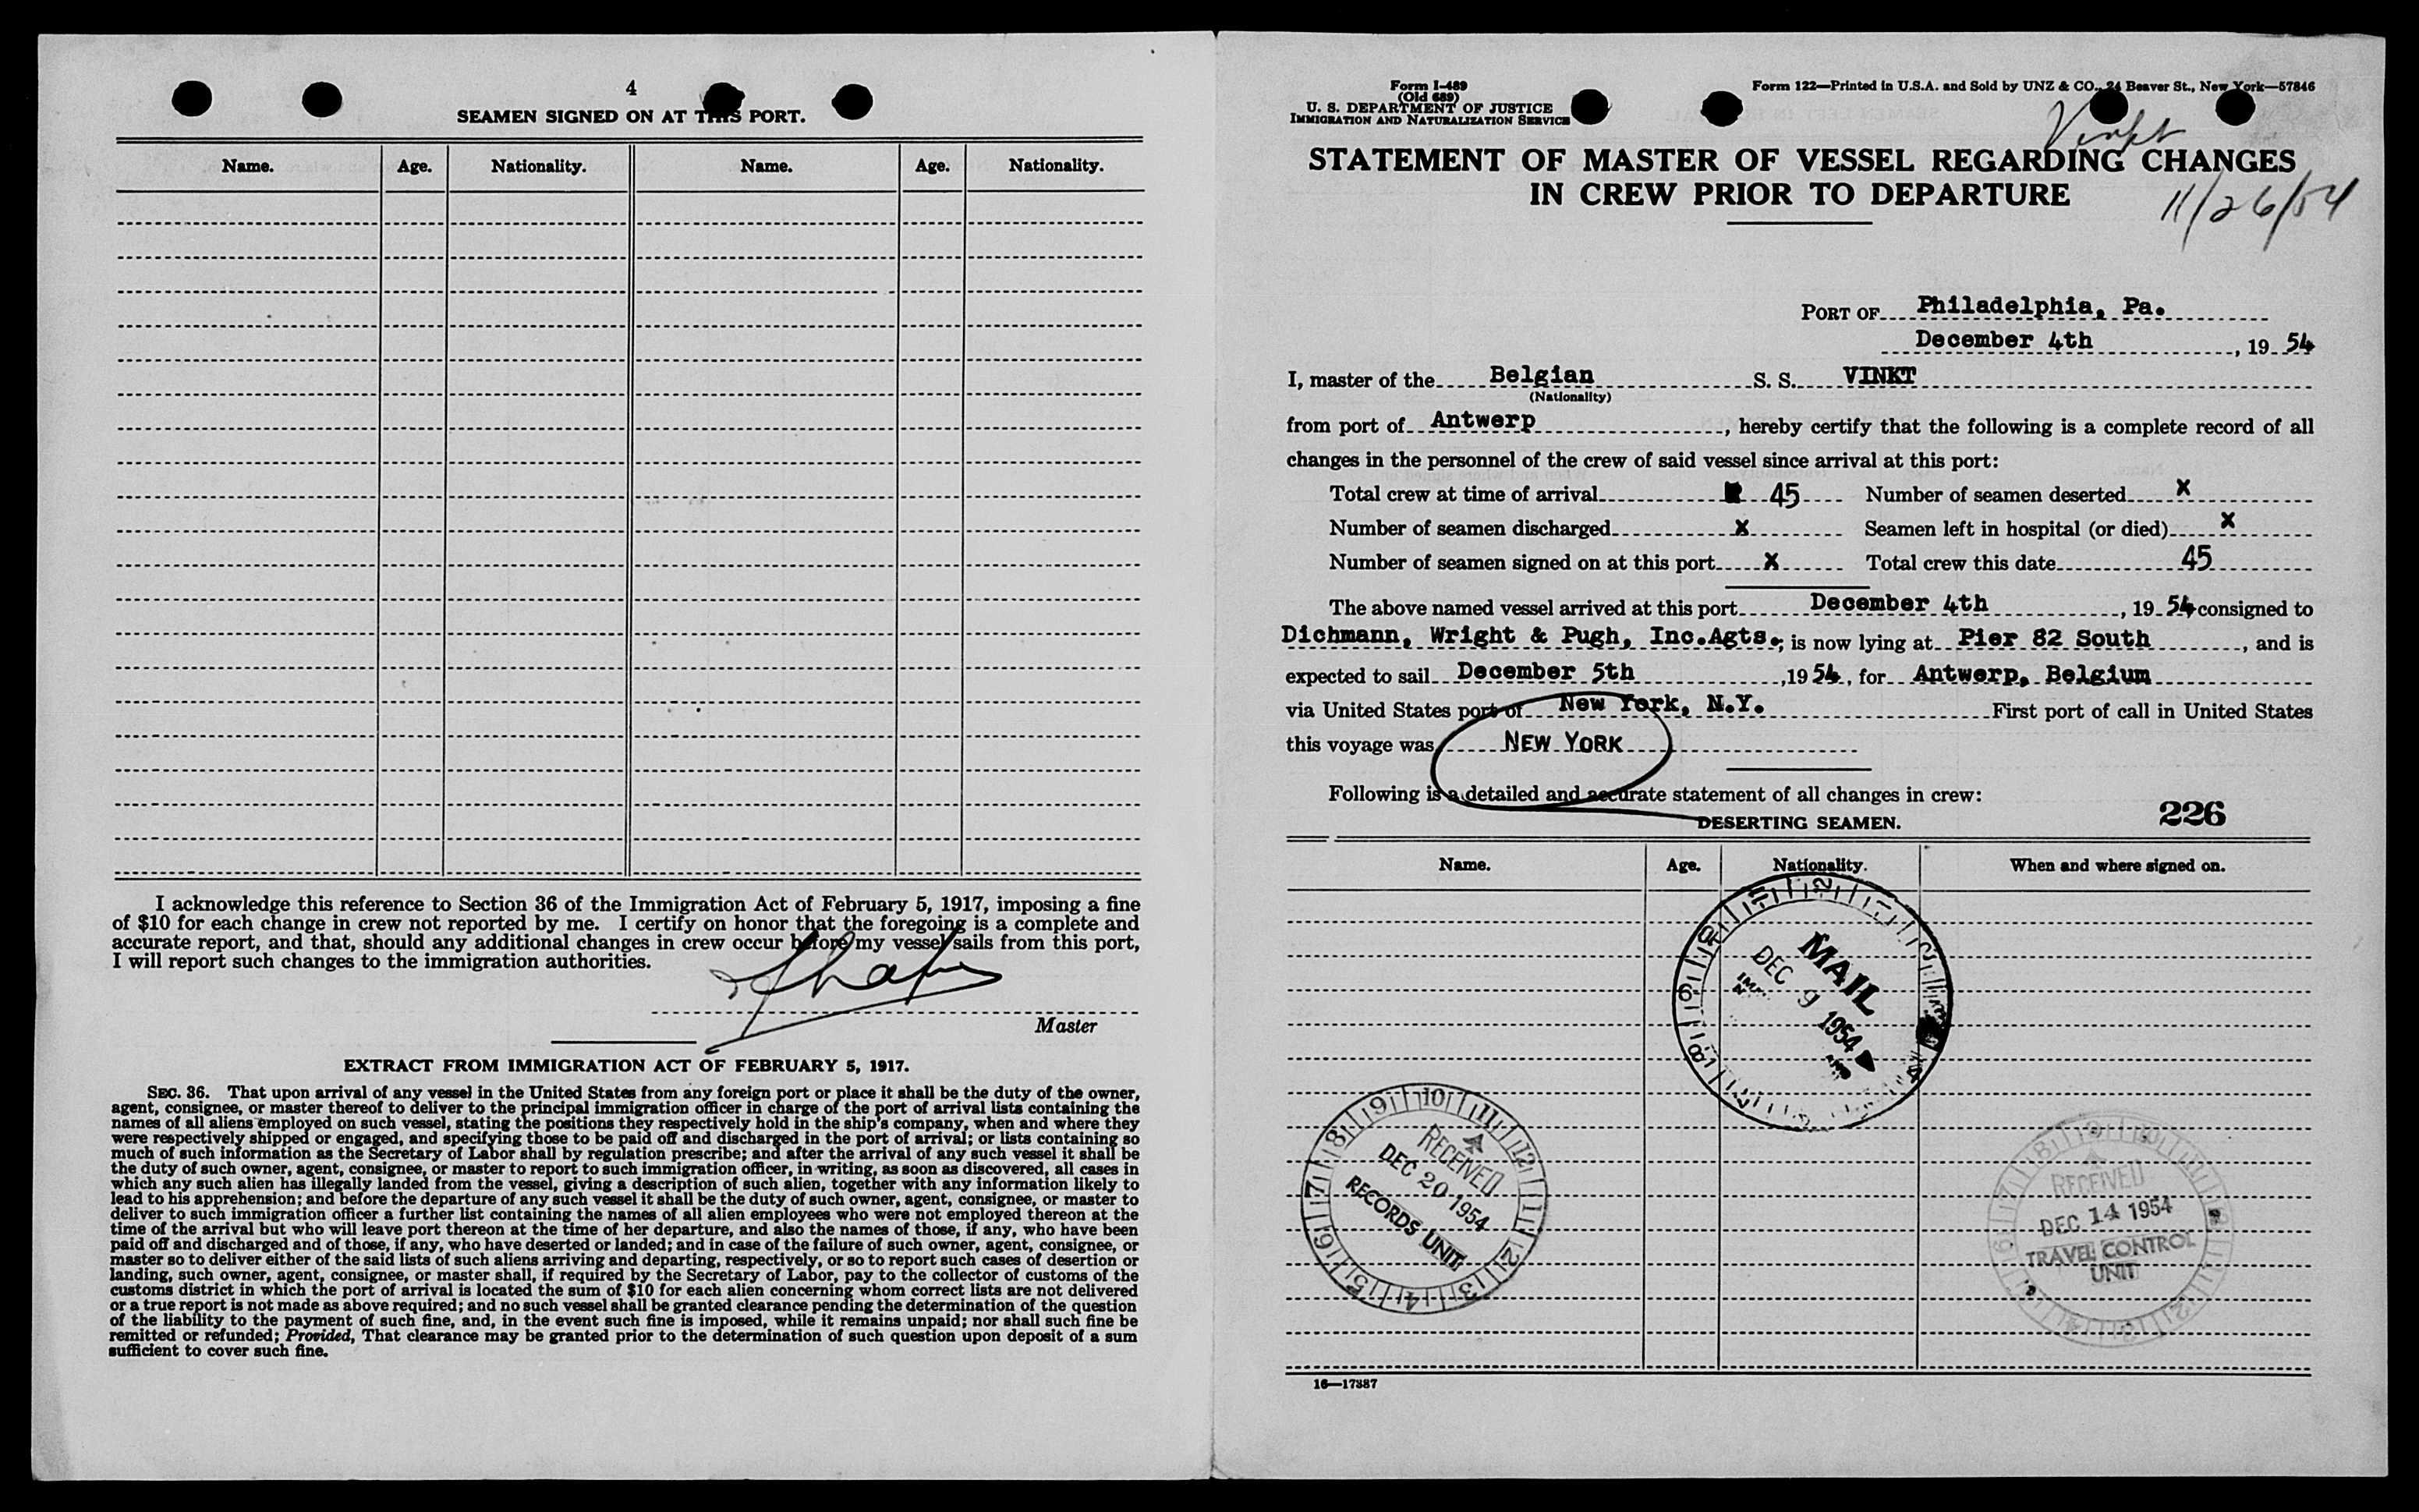 4
SEAMEN SIGNED ON AT THIS PORT.
Name. Age. Nationality. Name. Age. Nationality.
I acknowledge this reference to Section 36 of the Immigration Act of February 5, 1917, imposing a fine
of $10 for each change in crew not reported by me. I certify on honor that the foregoing is a complete and
accurate report, and that, should any additional changes in crew occur before my vessel sails from this port,
I will report such changes to the immigration authorities.
Master
EXTRACT FROM IMMIGRATION ACT OF FEBRUARY 5, 1917.
SEC. 36. That upon arrival of any vessel in the United States from any foreign port or place it shall be the duty of the owner,
agent, consignee, or master thereof to deliver to the principal immigration officer in charge of the port of arrival lists containing the
names of all aliens employed on such vessel, stating the positions they respectively hold in the ship's company, when and where they
were respectively shipped or engaged, and specifying those to be paid off and discharged in the port of arrival; or lists containing so
much of such information as the Secretary of Labor shall by regulation prescribe; and after the arrival of any such vessel it shall be
the duty of such owner, agent, consignee, or master to report to such immigration officer, in writing, as soon as discovered, all cases in
which any such alien has illegally landed from the vessel, giving a description of such alien, together with any information likely to
lead to his apprehension; and before the departure of any such vessel it shall be the duty of such owner, agent, consignee, or master to
deliver to such immigration officer a further list containing the names of all alien employees who were not employed thereon at the
time of the arrival but who will leave port thereon at the time of her departure, and also the names of those, if any, who have been
paid off and discharged and of those, if any, who have deserted or landed; and in case of the failure of such owner, agent, consignee, or
master so to deliver either of the said lists of such aliens arriving and departing, respectively, or so to report such cases of desertion or
landing, such owner, agent, consignee, or master shall, if required by the Secretary of Labor, pay to the collector of customs of the
customs district in which the port of arrival is located the sum of $10 for each alien concerning whom correct lists are not delivered
or a true report is not made as above required; and no such vessel shall be granted clearance pending the determination of the question
of the liability to the payment of such fine, and, in the event such fine is imposed, while it remains unpaid; nor shall such fine be
remitted or refunded; Provided, That clearance may be granted prior to the determination of such question upon deposit of a sum
sufficient to cover such fine.
Form I-489
(Old 689)
U. S. DEPARTMENT OF JUSTICE
IMMIGRATION AND NATURALIZATION SERVICE
Form 122—Printed in U.S.A. and Sold by UNZ & CO., 24 Beaver St., New York—57846
Vinkt
STATEMENT OF MASTER OF VESSEL REGARDING CHANGES
IN CREW PRIOR TO DEPARTURE
11/26/54
PORT OF Philadelphia, Pa.
December 4th, 19 54
I, master of the Belgian S. S. VINKT
(Nationality)
from port of Antwerp, hereby certify that the following is a complete record of all
changes in the personnel of the crew of said vessel since arrival at this port:
Total crew at time of arrival 45 Number of seamen deserted x
Number of seamen discharged x Seamen left in hospital (or died) x
Number of seamen signed on at this port x Total crew this date 45
The above named vessel arrived at this port December 4th, 19 54 consigned to
Dichmann, Wright & Pugh, Inc.Agts.; is now lying at Pier 82 South, and is
expected to sail December 5th, 1954, for Antwerp, Belgium
via United States port of New York, N.Y. First port of call in United States
this voyage was NEW YORK
Following is a detailed and accurate statement of all changes in crew:
226
DESERTING SEAMEN.
Name. Age. Nationality. When and where signed on.
MAIL
DEC 9 1954
RECEIVED
DEC 20 1954
RECORDS UNIT
RECEIVED
DEC 14 1954
TRAVEL CONTROL
UNIT
16—17387